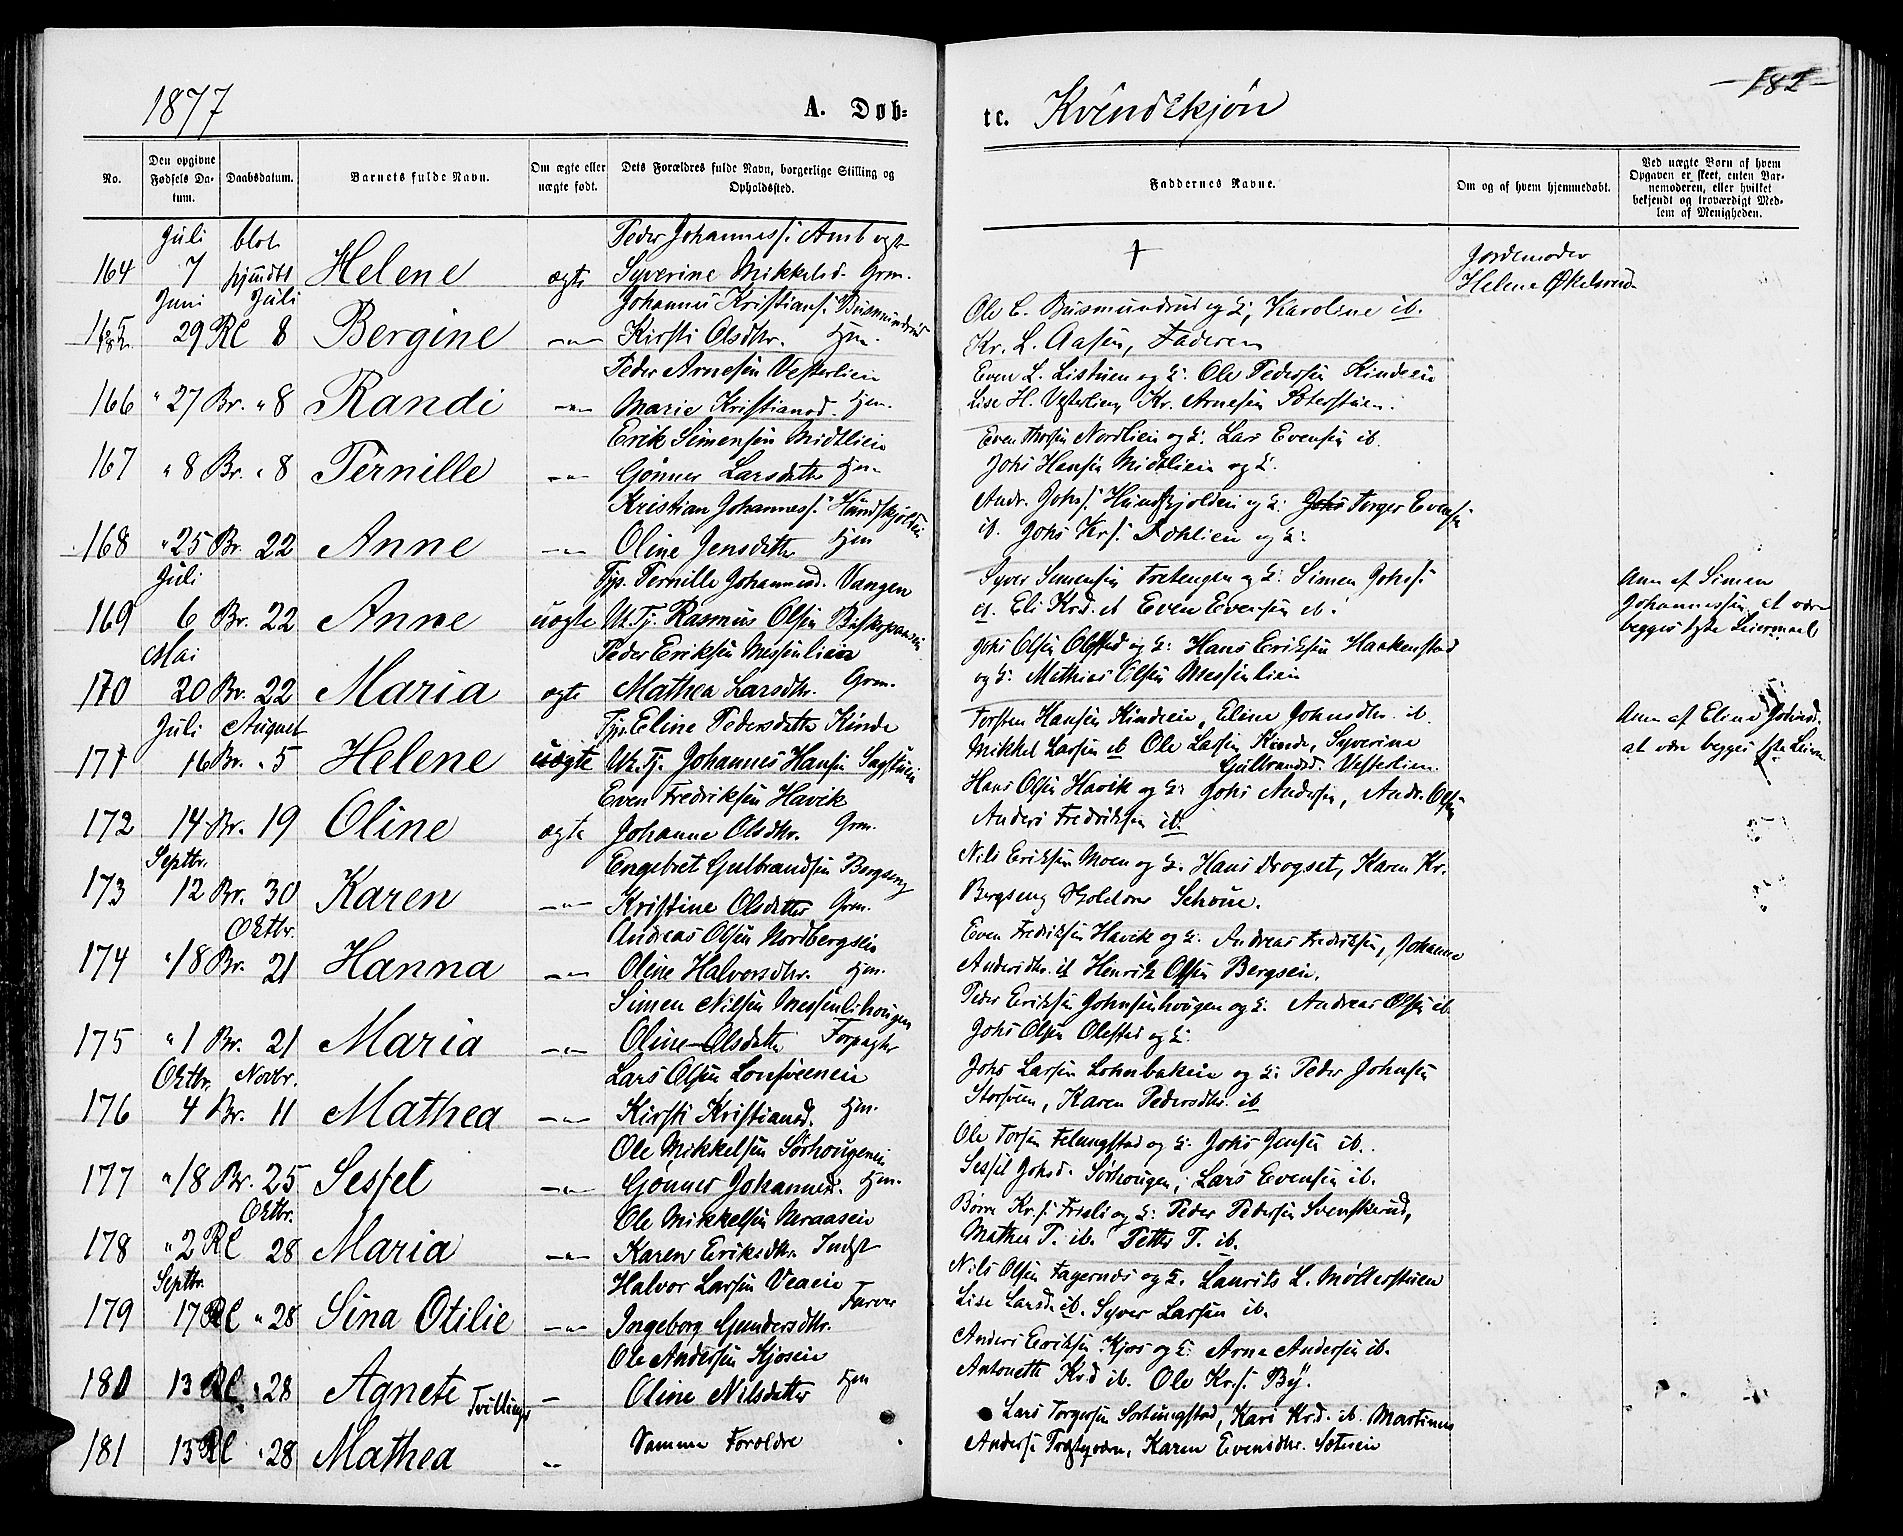 1877
A. Døb=
te. Kvindekjøn
182
No.
Den opgivne Fødsels Datum.
Daabsdatum.
Barnets fulde Navn.
Om ægte eller uægte født.
Dets Forældres fulde Navn, borgerlige Stilling og Opholdssted.
Faddernes Navne.
Om og af hvem hjemmedøbt.
Ved uægte Børn af hvem Opgaven er skeet, enten Barnemoderen, eller hvilket bekjendt og troværdigt Medlem af Menigheden.
Juli blot Peder Johanness.
164 7 Helene ægte Syverine Mikkelsd. Grm. † Jordemoder
Helene Økelsrud
Juni Juli Johannes Kristians. Busmundrud Ole C. Busmundrud og H; Karoline ib.
165 29 Rl 8 Bergine –"– Kirsti Olsdtr. Hm. Kr. L. Aasen, Faderen
Peder Arnesen Vesterlien Even L. Listuen og H: Ole Pedersen Kindeie
166 " 27 Br. " 8 Randi –"– Marie Kristiansd. Hm. Lise H. Vesterlien, Kr. Arnesen
Erik Simensen Midtlien Even Thorsen Nordlien og H: Lars Evensen ib.
167 " 8 Br. " 8 Pernille –"– Gønner Larsdatter Hm. Johs Hansen Midtlien og H.
Kristian Johanness. Håndskjolden Andr. Johs. og H: Johs Torger Evensen
168 " 25 Br. 22 Anne –"– Oline Jensdatter Hm ib. Johs Krs. Dahlien og H:
Juli Tjp. Pernille Johannesd. Vangen Syver Simensen Tretengen og H: Simen Johs. Ann. af Simen
169 6 Br. 22 Anne uægte U.K. Tj. Rasmus Olsen ib. Eli Krd. ib Even Evensen ib. Johannessen at være
Mai Peder Eriksen Messenlien Johs Olsen Olestad og H: Hans Eriksen Haakenstad begges 1ste Leiermaal
170 20 Br. 22 Maria ægte Mathea Larsdtr. Grm. og H: Mathias Olsen Messenlien
Juli August Tjp. Eline Pedersdatter Kinde Torsten Hansen Kindeie, Eline Johnsdtr. ib. Ann af Eline
171 16 Br. " 5 Helene uægte U.K. Tj. Johannes Hansen Sagstuen Mikkel Larsen ib Ole Larsen Kinde, Syverine at være begges
Gulbrandsd. Vesterlien.
Even Fredriksen Havik Hans Olsen Havik og H: Johs Andersen, Andr. Olsen
172 14 Br. 19 Oline ægte Johanne Olsdtr. Grm. Anders Fredriksen ib.
Septbr. Engebret Gulbrandsen Bergseng Nils Eriksen Moen og H. Hans Drogset, Karen Kr.
173 12 Br. 30 Karen –"– Kristine Olsdatter Grm. Bergseng
Oktbr. Andreas Olsen Nordbergseie Even Fredriksen Havik og H. Andreas Fredriksen, Johanne
174 " 18 Br. 21 Hanna –"– Oline Halvorsdtr. Hm. Andersdtr. ib Henrik Olsen Bergseie.
Simen Nilsen Messenlihougen Peder Eriksen Johnsenhougen og H. Andreas Olsen ib.
175 " 1 Br. 21 Maria –"– Oline Olsdatter Forpagter Johs Olsen Olestad og H.
Oktbr. Novbr. Lars Olsen Lonsveeneie Johs Larsen Lohnbakken og H: Peder Johnsen
176 4 Br. 11 Mathea –"– Kirsti Kristiansd. Hm. Storsveen, Karen Pedersdtr. ib
Ole Mikkelsen Sørhougenie Ole Torsen og H: Johs Jensen ib.
177 " 18 Br. 25 Sessel –"– Gønner Johannesd. Hm. Sessel Johsd. Sørhougen, Lars Evensen ib.
Oktbr. Ole Mikkelsen Neraaseie Børre Kr.s. Frisli og H: Peder Pedersen Svenskerud,
178 " 2 Rl 28 Maria –"– Karen Eriksdtr. Indst Mathea P. ib. Petter P. ib.
Septbr. Halvor Larsen Veaeie Nils Olsen Fagernæs og H. Laurits L. Møllerstuen
179 17 Rl " 28 Sina Otilie –"– Ingeborg Gundersdtr. Farver Lise Larsd. ib. Syver Larsen ib.
Ole Andersen Kjoseie Anders Eriksen Kjos og H: Arne Andersen ib.
180 13 Rl " 28 Agnete Tvillinger – Oline Nilsdatter Hm Antonette Krd ib. Ole Krs. By.
181 13 Rl " 28 Mathea " Samme Forældre Lars Torgersen Sortungstad, Kari Krd. ib. Martinus
Anders. Karen Evensdtr.